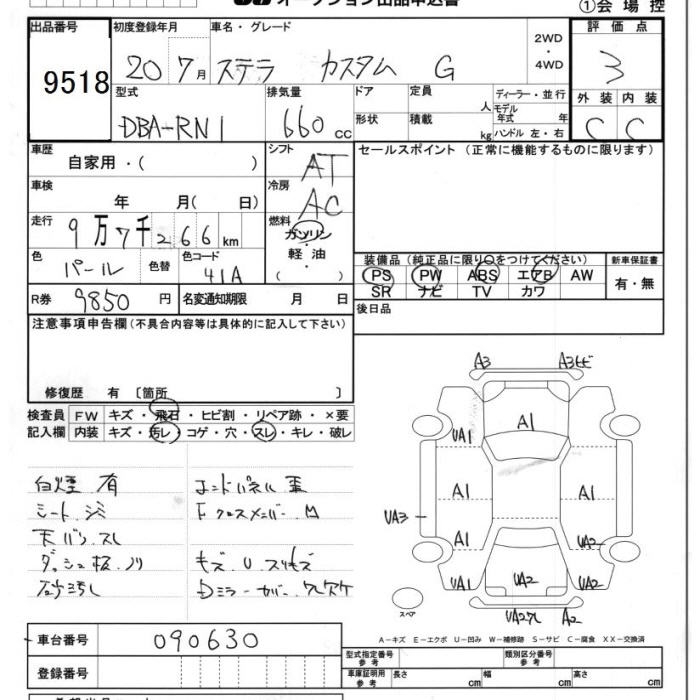 オークション出品申込書 ①会場控
出品番号 初度登録年月 車名・グレード 2WD・4WD 評価点
9518 20 7月 ステラ カスタム G 3
型式 排気量 ドア 定員 人 ディーラー・並行 外装 内装
DBA-RN1 660cc 形状 積載 kg モデル年式 年 ハンドル 左・右 C C
車歴 自家用・( ) シフト AT セールスポイント (正常に機能するものに限ります)
車検 年 月( 日) 冷房 AC
走行 9万7千266km 燃料 ガソリン
軽油
( )
色 パール 色替 色コード 41A 装備品 (純正品に限り○をつけてください) 新車保証書
PS PW ABS エアB AW 有・無
SR ナビ TV カワ
R券 9850円 名変通知期限 月 日 後日品
注意事項申告欄(不具合内容等は具体的に記入して下さい)
修復歴 有 〔箇所 〕
検査員 FW キズ・飛石・ヒビ割・リペア跡・×要
記入欄 内装 キズ・汚レ・コゲ・穴・スレ・キレ・破レ
白煙 有
シート.シミ
天バリ.スレ キズ.U.スリキズ
ダッシュ板.ノリ Dミラーカバー.ワレアケ
A3 A3ヒビ
A1
UA1
A1 A1
UA3
A1 UA2
UA1 UA2 UA2
UA2ワレ A2
スペア
A-キズ E-エクボ U-凹み W-補修跡 S-サビ C-腐食 XX-交換済
車台番号 090630
型式指定番号 参考 類別区分番号 参考
登録番号 車庫証明用 参考 長さ cm 幅 cm 高さ cm